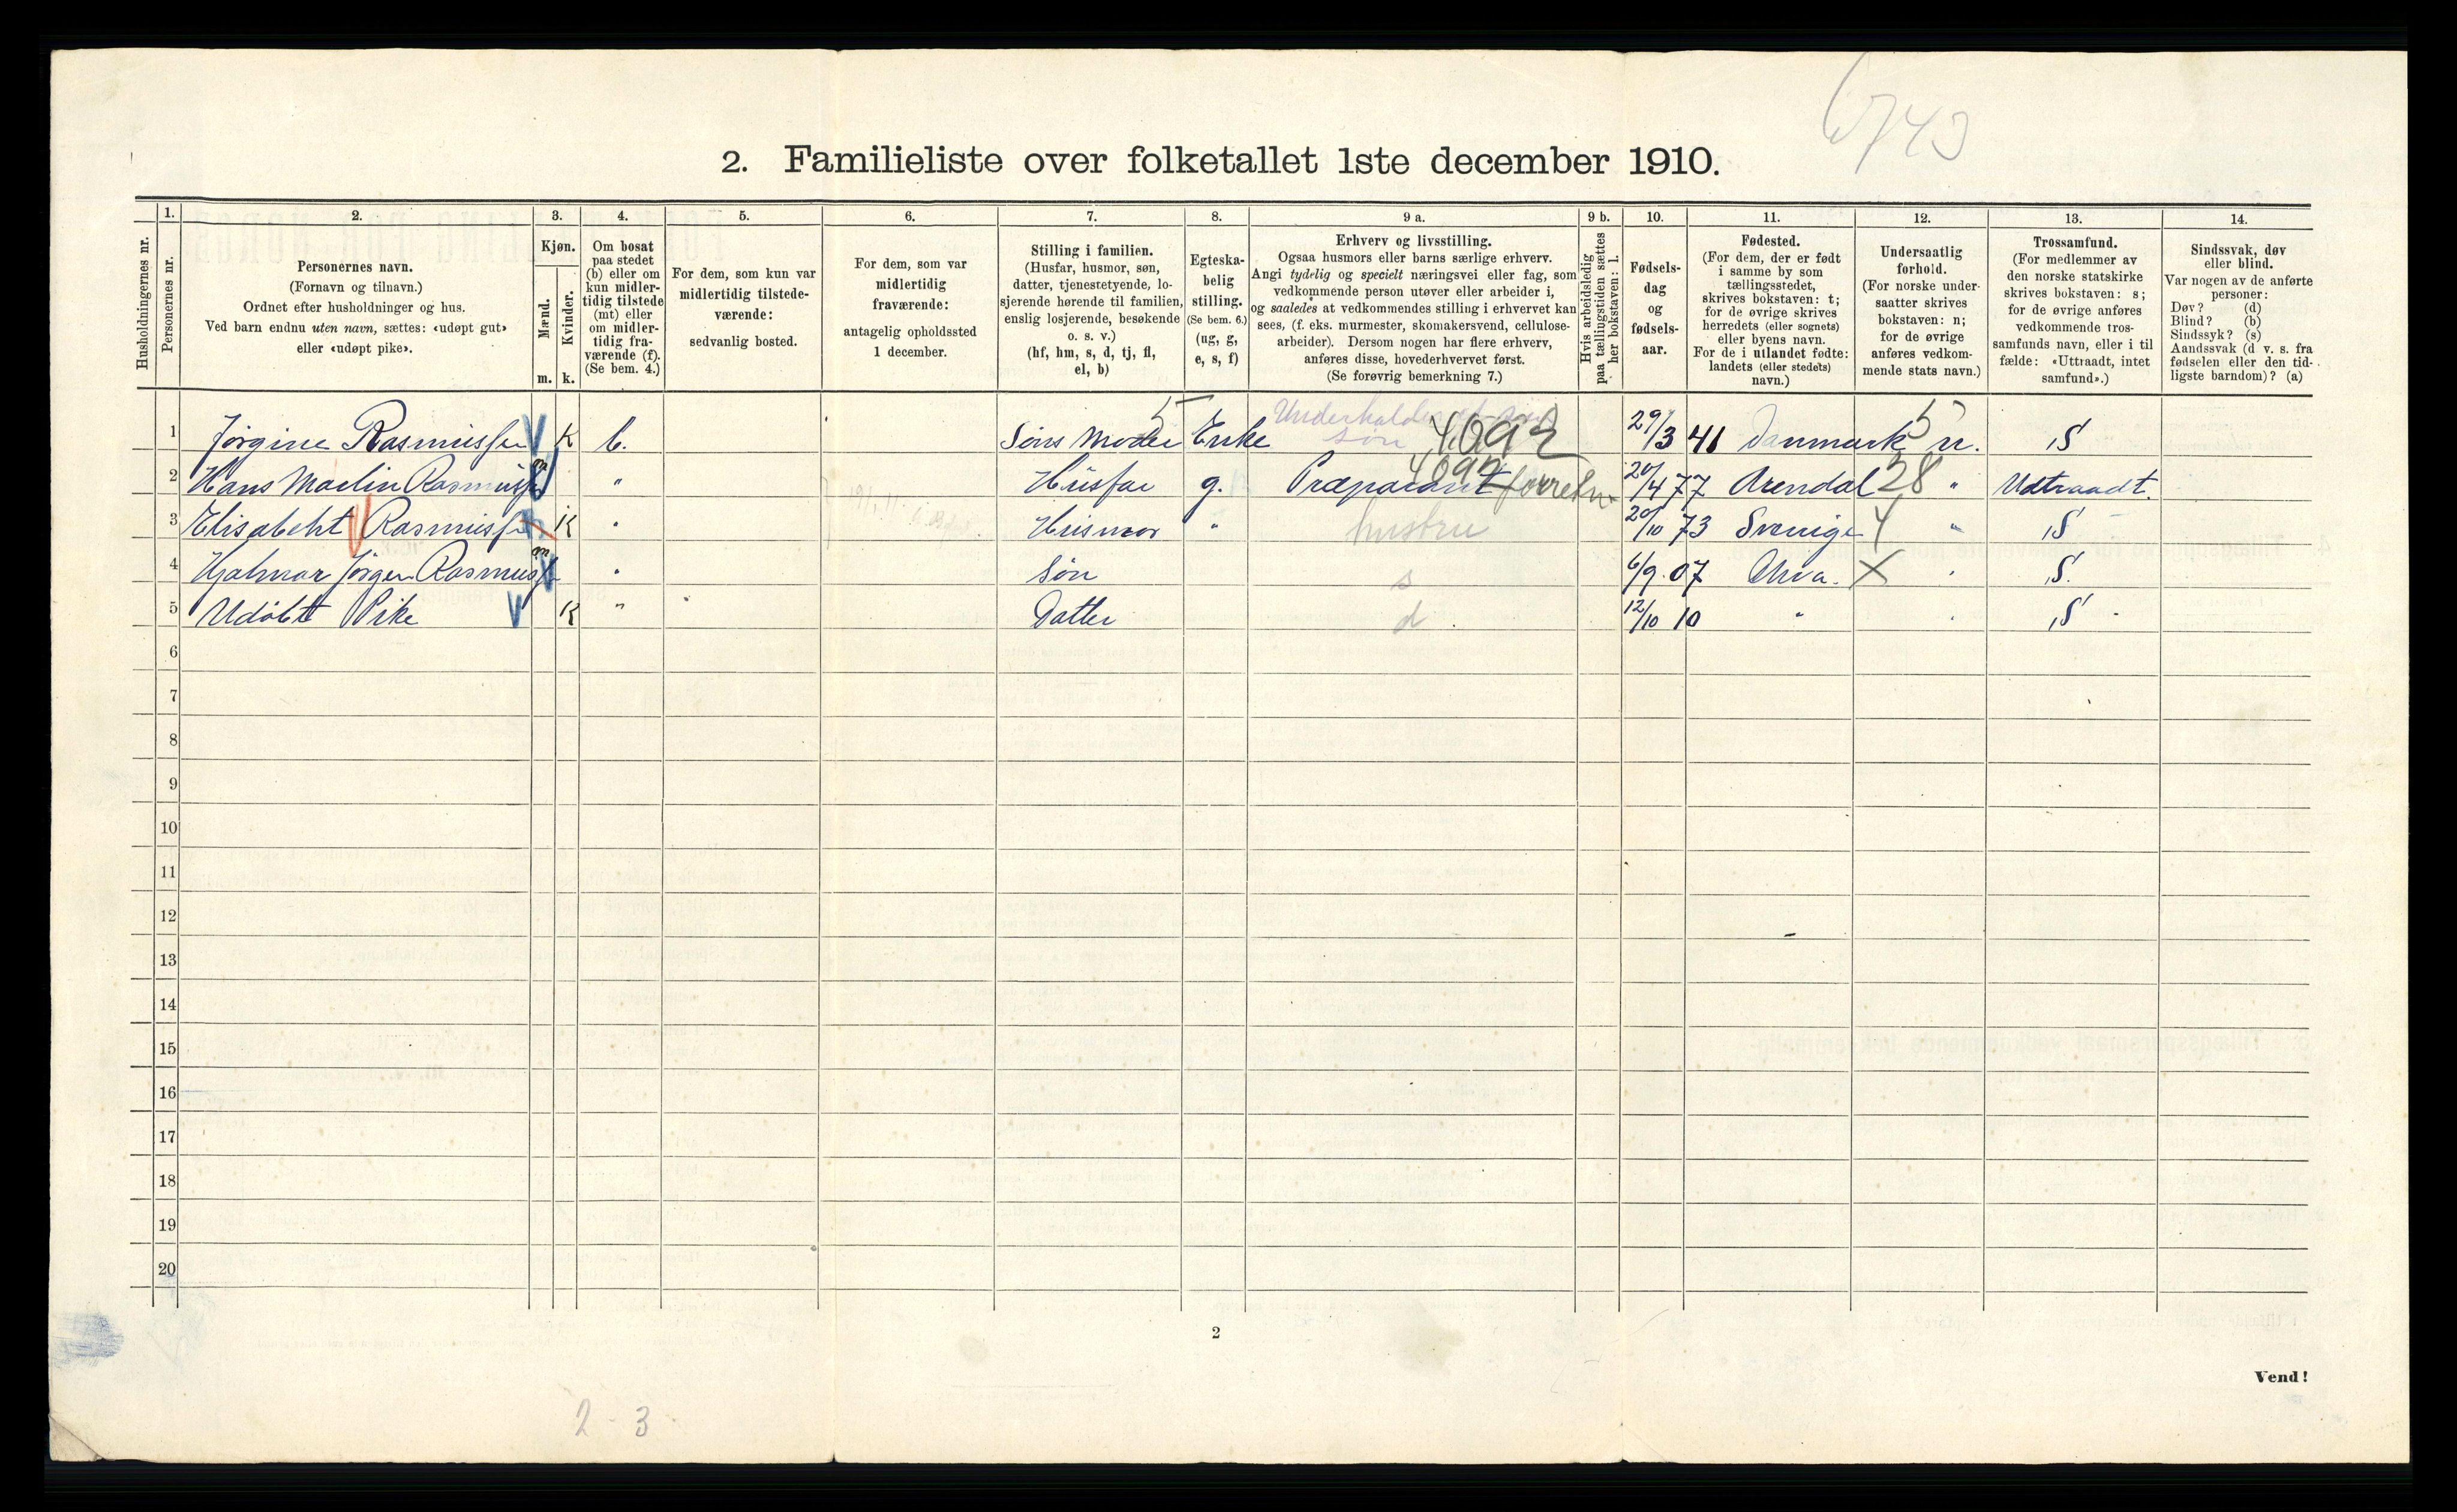 6743
2. Familieliste over folketallet 1ste december 1910.
Husholdningernes nr.
1. Personernes nr.
2. Personernes navn.
(Fornavn og tilnavn.)
Ordnet efter husholdninger og hus.
Ved barn endnu uten navn, sættes: «udøpt gut»
eller «udøpt pike».
3. Kjøn.
Mænd. m.
Kvinder. k.
4. Om bosat
paa stedet
(b) eller om
kun midler-
tidig tilstede
(mt) eller
om midler-
tidig fra-
værende (f).
(Se bem. 4.)
5. For dem, som kun var
midlertidig tilstede-
værende:
sedvanlig bosted.
6. For dem, som var
midlertidig
fraværende:
antagelig opholdssted
1 december.
7. Stilling i familien.
(Husfar, husmor, søn,
datter, tjenestetyende, lo-
sjerende hørende til familien,
enslig losjerende, besøkende
o. s. v.)
(hf, hm, s, d, tj, fl,
el, b)
8. Egteska-
belig
stilling.
(Se bem. 6.)
(ug, g,
e, s, f)
9 a. Erhverv og livsstilling.
Ogsaa husmors eller barns særlige erhverv.
Angi tydelig og specielt næringsvei eller fag, som
vedkommende person utøver eller arbeider i,
og saaledes at vedkommendes stilling i erhvervet kan
sees, (f. eks. murmester, skomakersvend, cellulose-
arbeider). Dersom nogen har flere erhverv,
anføres disse, hovederhvervet først.
(Se forøvrig bemerkning 7.)
9 b. Hvis arbeidsledig
paa tællingstiden sættes
her bokstaven: l.
10. Fødsels-
dag
og
fødsels-
aar.
11. Fødested.
(For dem, der er født
i samme by som
tællingsstedet,
skrives bokstaven: t;
for de øvrige skrives
herredets (eller sognets)
eller byens navn.
For de i utlandet fødte:
landets (eller stedets)
navn.)
12. Undersaatlig
forhold.
(For norske under-
saatter skrives
bokstaven: n;
for de øvrige
anføres vedkom-
mende stats navn.)
13. Trossamfund.
(For medlemmer av
den norske statskirke
skrives bokstaven: s;
for de øvrige anføres
vedkommende tros-
samfunds navn, eller i til
fælde: «Uttraadt, intet
samfund».)
14. Sindssvak, døv
eller blind.
Var nogen av de anførte
personer:
Døv? (d)
Blind? (b)
Sindssyk? (s)
Aandssvak (d v. s. fra
fødselen eller den tid-
ligste barndom)? (a)
1 Jørgine Rasmussen V K b. Søns Moder Enke søn 4092 29/3 41 Danmark 5 n. S
2 Hans Martin Rasmussen V m " Husfar g. Præparant forretn 4092 20/4 77 Arendal 28 " Udtraadt.
3 Elisabeht V Rasmussen K " Husmor " hustru 20/10 73 Sverige 4 " S
4 Hjalmar Jørgen Rasmussen m " Søn s 6/9. 07 Chra. X " S.
5 Udöbt Pike V K " Datter d 12/10 10 " " S
6
7
8
9
10
11
12
13
14
15
16
17
18
19
20
2
Vend!
2 - 3